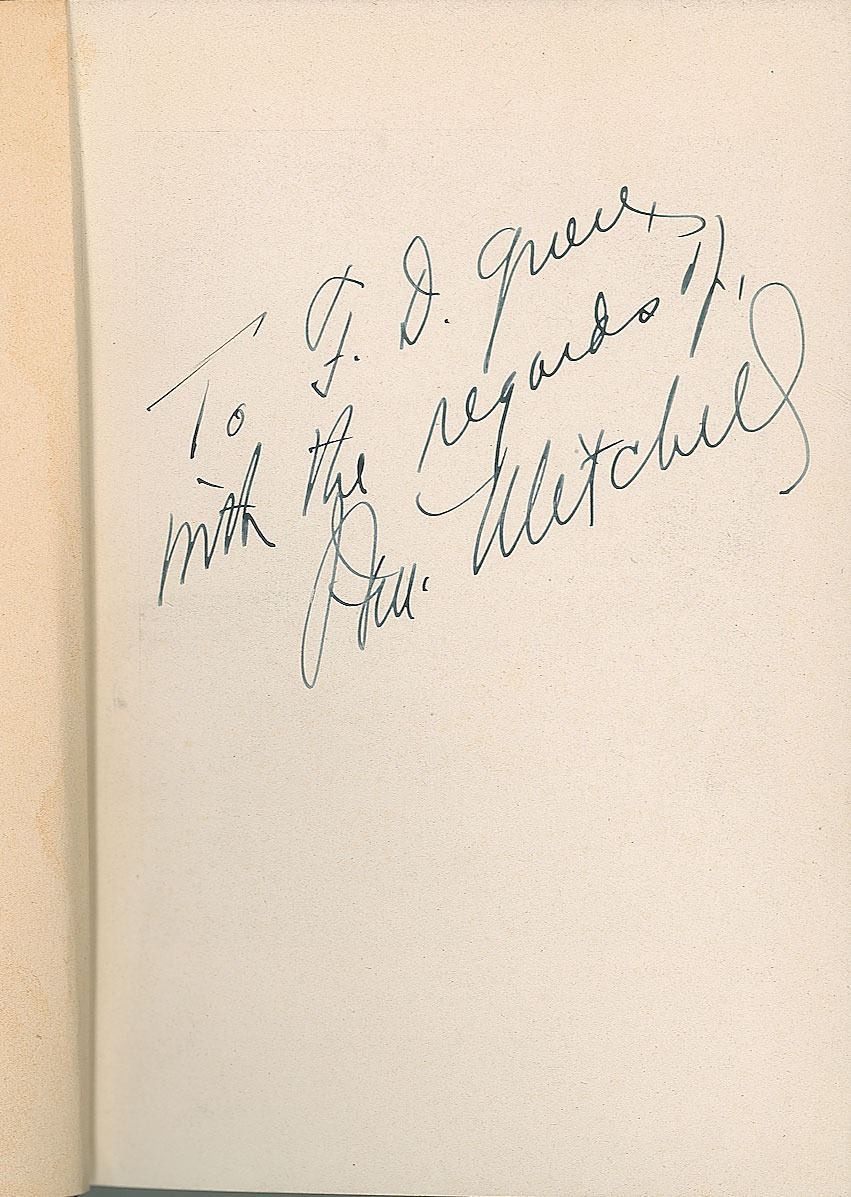 To F. D. Green
with the regards of,
Wm. Mitchell